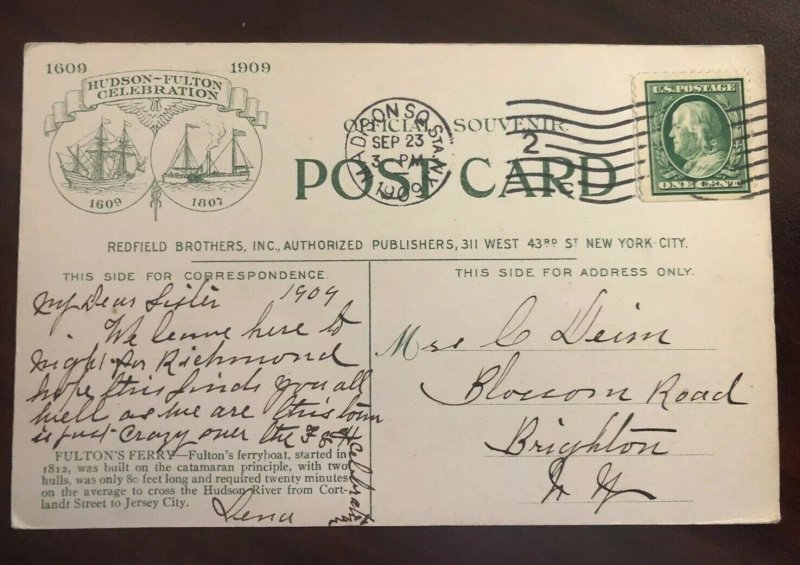 1609 1909
HUDSON-FULTON
CELEBRATION
1609 1807
OFFICIAL SOUVENIR
POST CARD
MADISON SQ. STA. N.Y.
SEP 23
3 PM
1909
2
C
U.S. POSTAGE
ONE CENT
REDFIELD BROTHERS, INC., AUTHORIZED PUBLISHERS, 311 WEST 43RD ST NEW YORK CITY.
THIS SIDE FOR CORRESPONDENCE.
My Dear Sister 1909
We leave here to
night for Richmond
hope this finds you all
well as we are this town
is just crazy over the F & H
celebration
FULTON'S FERRY—Fulton's ferryboat, started in
1812, was built on the catamaran principle, with two
hulls, was only 80 feet long and required twenty minutes
on the average to cross the Hudson River from Cort-
landt Street to Jersey City.
Lena
THIS SIDE FOR ADDRESS ONLY.
Mrs C Deim
Blossom Road
Brighton
N Y